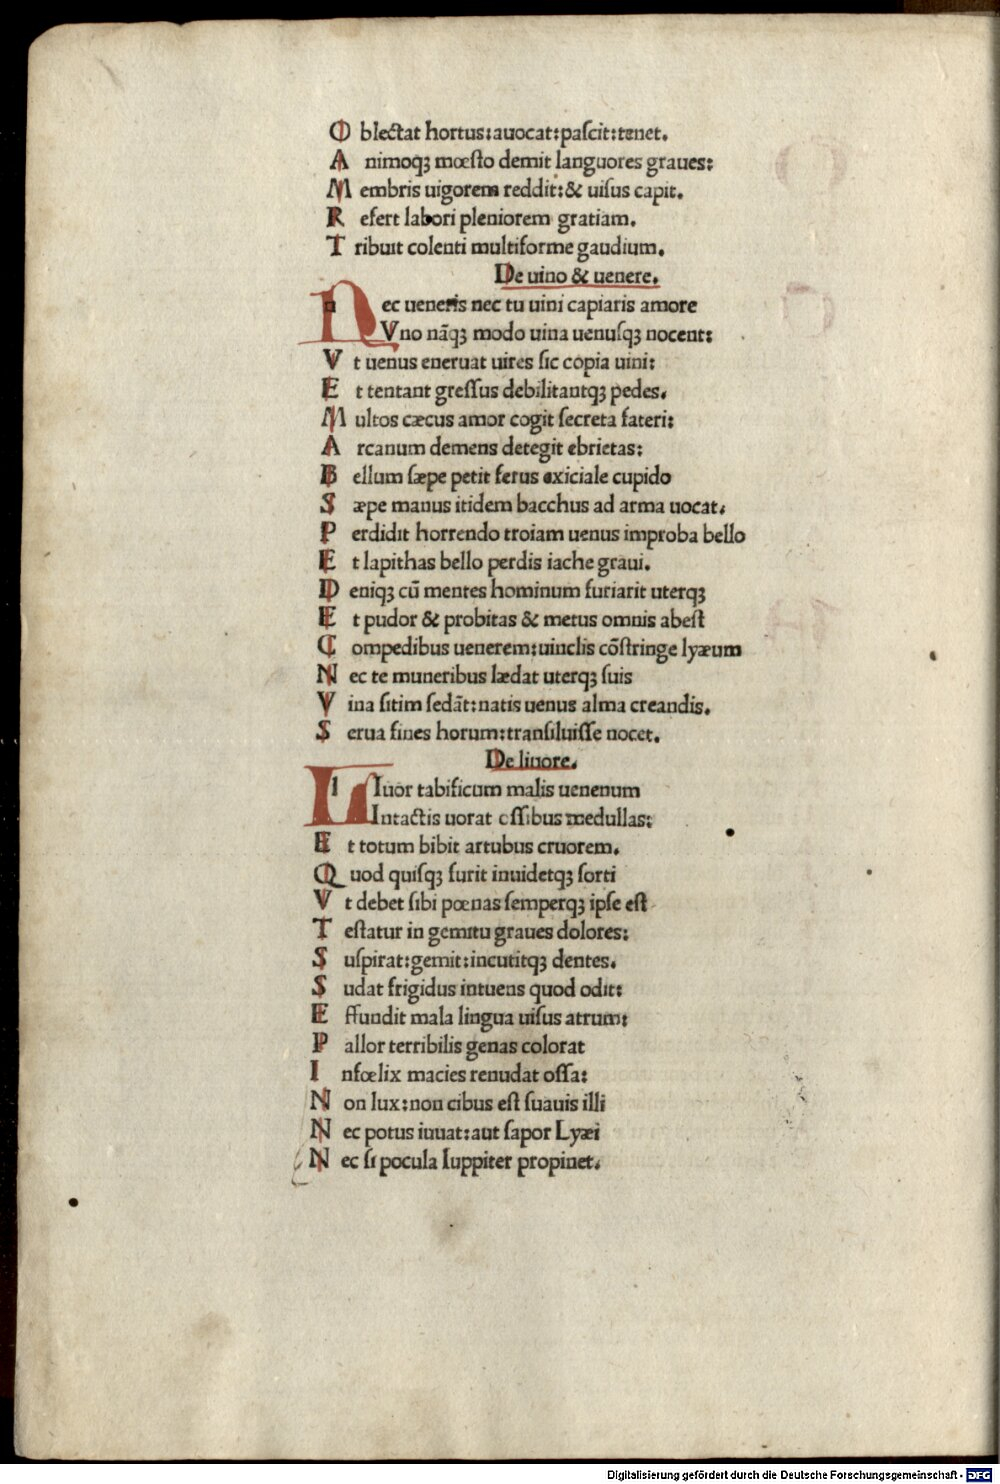 O blectat hortus:auocat:paſcit:tenet.
A nimoqȝ mœſto demit languores graues:
M embris uigorem reddit:& uiſus capit.
R efert labori pleniorem gratiam.
T ribuit colenti multiforme gaudium.
De uino & uenere.
N ec ueneris nec tu uini capiaris amore
Vno nãqȝ modo uina uenuſqȝ nocent:
V t uenus eneruat uires ſic copia uini:
E t tentant greſſus debilitantqȝ pedes.
M ultos cæcus amor cogit ſecreta fateri:
A rcanum demens detegit ebrietas:
B ellum ſæpe petit ferus exiciale cupido
S æpe manus itidem bacchus ad arma uocat.
P erdidit horrendo troiam uenus improba bello
E t lapithas bello perdis iache graui.
D eniqȝ cũ mentes hominum furiarit uterqȝ
E t pudor & probitas & metus omnis abeſt
C ompedibus uenerem:uinclis cõſtringe lyæum
N ec te muneribus lædat uterqȝ ſuis
V ina ſitim ſedãt:natis uenus alma creandis.
S erua fines horum:tranſiluiſſe nocet.
De liuore.
LIuor tabificum malis uenenum
Intactis uorat oſſibus medullas:
E t totum bibit artubus cruorem.
Q uod quiſqȝ furit inuidetqȝ ſorti
V t debet ſibi pœnas ſemperqȝ ipſe eſt
T eſtatur in gemitu graues dolores:
S uſpirat:gemit:incutitqȝ dentes.
S udat frigidus intuens quod odit:
E ffundit mala lingua uiſus atrum:
P allor terribilis genas colorat
I nfœlix macies renudat oſſa:
N on lux:non cibus eſt ſuauis illi
N ec potus iuuat:aut ſapor Lyæi
N ec ſi pocula Iuppiter propinet.
Digitalisierung gefördert durch die Deutsche Forschungsgemeinschaft - DFG